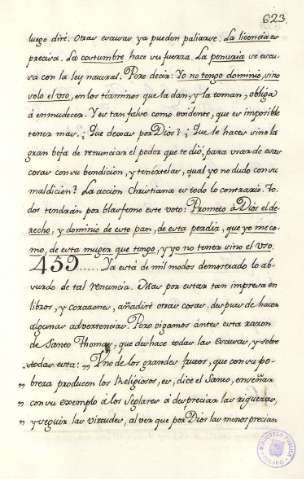 623
luego diré. Otras escusas ya pueden paliarse. La licencia es
precisa. La costumbre hace su fuerza. La penuria se escu
sa con la ley natural. Pero decir: Yo no tengo dominio, sino
solo el uso, en los términos que la dan, y la toman, obliga
á enmudecer. Y es tan falso como evidente, que es imposible
tener mas. ¿ Que cosas por Dios? ¿ Que le haces sino la
gran befa de renunciar el poder que te dió, para usar de esas
cosas con su bendicion, y tenertelas, qual yo no dudo con su
maldicion? La accion Christiana es todo lo contrario. To
dos tendrán por blasfemo este voto: Prometo á Dios el de
recho, y dominio de este pan, de esta perdiz, que yo me co
mo, de esta muger que tengo, y yo no tener sino el uso.
459...... Ya está de mil modos demostrado lo ab
surdo de tal renuncia. Mas por estar tan impresa en
libros, y corazones, añadiré otras cosas, despues de hacer
algunas advertencias. Pero oigamos ántes esta razon
de Santo Thomas, que deshace todas las escusas, y sobre
todas esta: „ Uno de los grandes frutos, que con su po
„ breza producen los Religiosos, es, dice el Santo, enseñar
con su exemplo á los Seglares á despreciar las riquezas,
„ y seguir las virtudes, al ver que por Dios las menosprecian